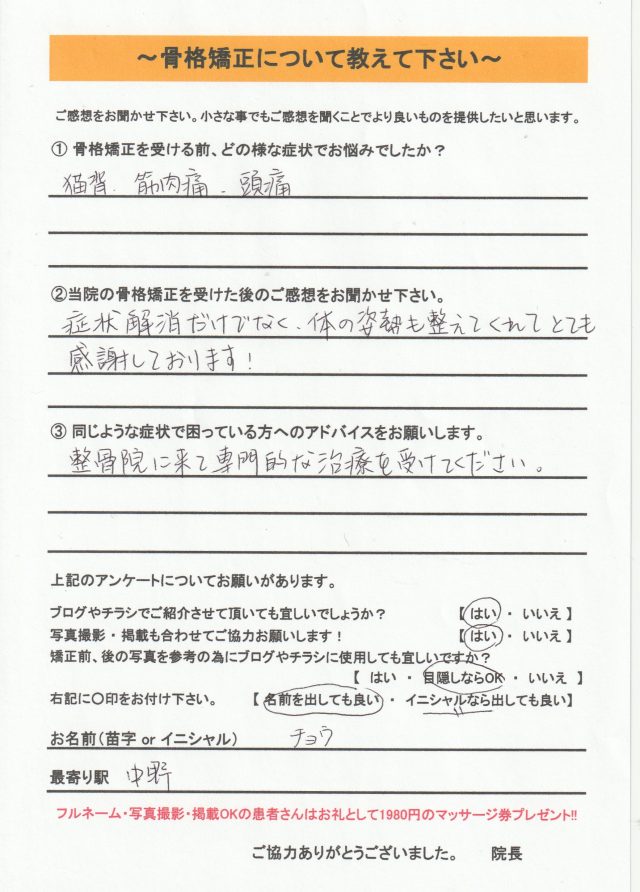 ～骨格矯正について教えて下さい～
ご感想をお聞かせ下さい。小さな事でもご感想を聞くことでより良いものを提供したいと思います。
① 骨格矯正を受ける前、どの様な症状でお悩みでしたか？
猫背、筋肉痛、頭痛
②当院の骨格矯正を受けた後のご感想をお聞かせ下さい。
症状解消だけでなく、体の姿勢も整えてくれてとても
感謝しております！
③ 同じような症状で困っている方へのアドバイスをお願いします。
整骨院に来て専門的な治療を受けてください。
上記のアンケートについてお願いがあります。
ブログやチラシでご紹介させて頂いても宜しいでしょうか？ 【 はい ・ いいえ 】
写真撮影・掲載も合わせてご協力お願いします！ 【 はい ・ いいえ 】
矯正前、後の写真を参考の為にブログやチラシに使用しても宜しいですか？
【 はい ・ 目隠しならOK ・ いいえ 】
右記に〇印をお付け下さい。 【 名前を出しても良い ・ イニシャルなら出しても良い】
お名前（苗字 or イニシャル） チョウ
最寄り駅 中野
フルネーム・写真撮影・掲載OKの患者さんはお礼として1980円のマッサージ券プレゼント!!
ご協力ありがとうございました。 院長